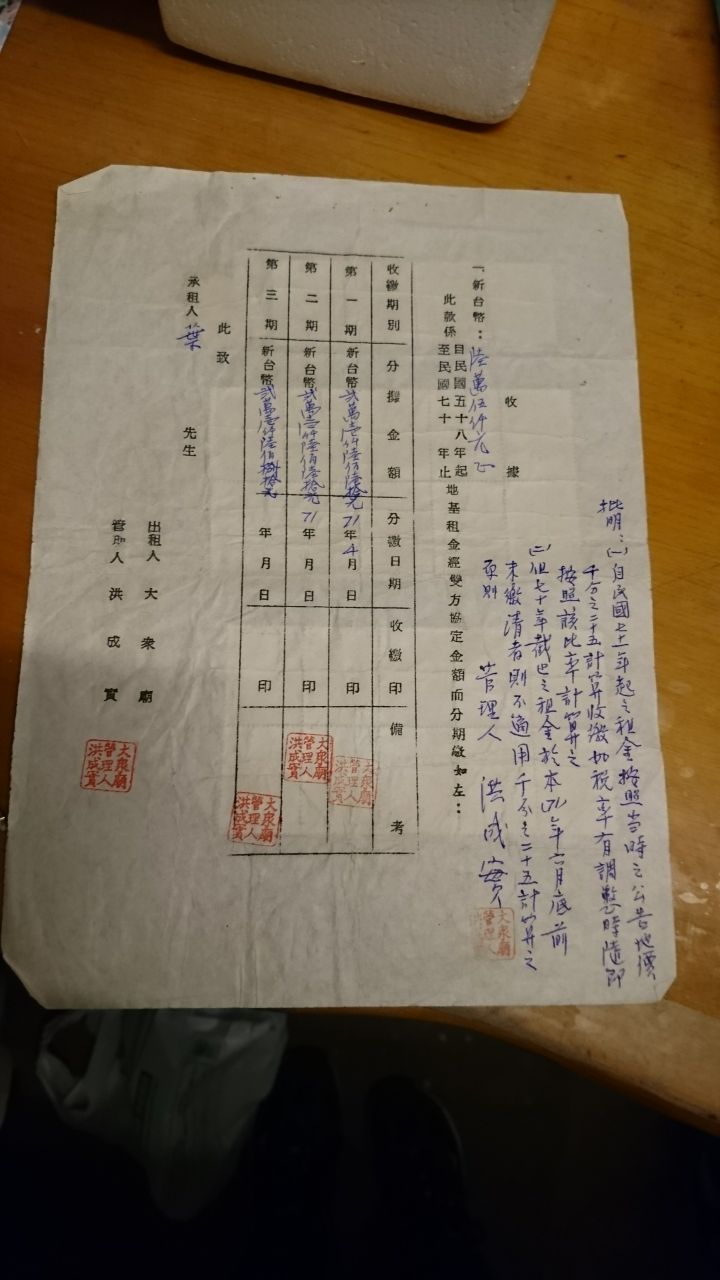 批明：㈠自民國七十一年起之租金按照當時之公告地價
千分之二十五計算收繳如稅率有調整時隨即
按照該比率計算之
㈡但七十年截止之租金於本71年六月底前
未繳清者則不適用千分之二十五計算之
原則　管理人　洪成寶
大眾廟管理人洪成寶
收據
一新台幣：陸萬伍仟元正
此款係自民國五十八年起至民國七十年止地基租金經雙方協定金額而分期繳如左：
收繳期別　分攤金額　分繳日期　收繳印　備考
第一期　新台幣貳萬壹仟陸佰陸拾元　71年4月　日　印　大眾廟管理人洪成寶
第二期　新台幣貳萬壹仟陸佰陸拾元　71年　月　日　印　大眾廟管理人洪成寶
第三期　新台幣貳萬壹仟陸佰捌拾元　年　月　日　印　大眾廟管理人洪成寶
此致
承租人　葉　先生
出租人　大眾廟
管理人　洪成寶
大眾廟管理人洪成寶